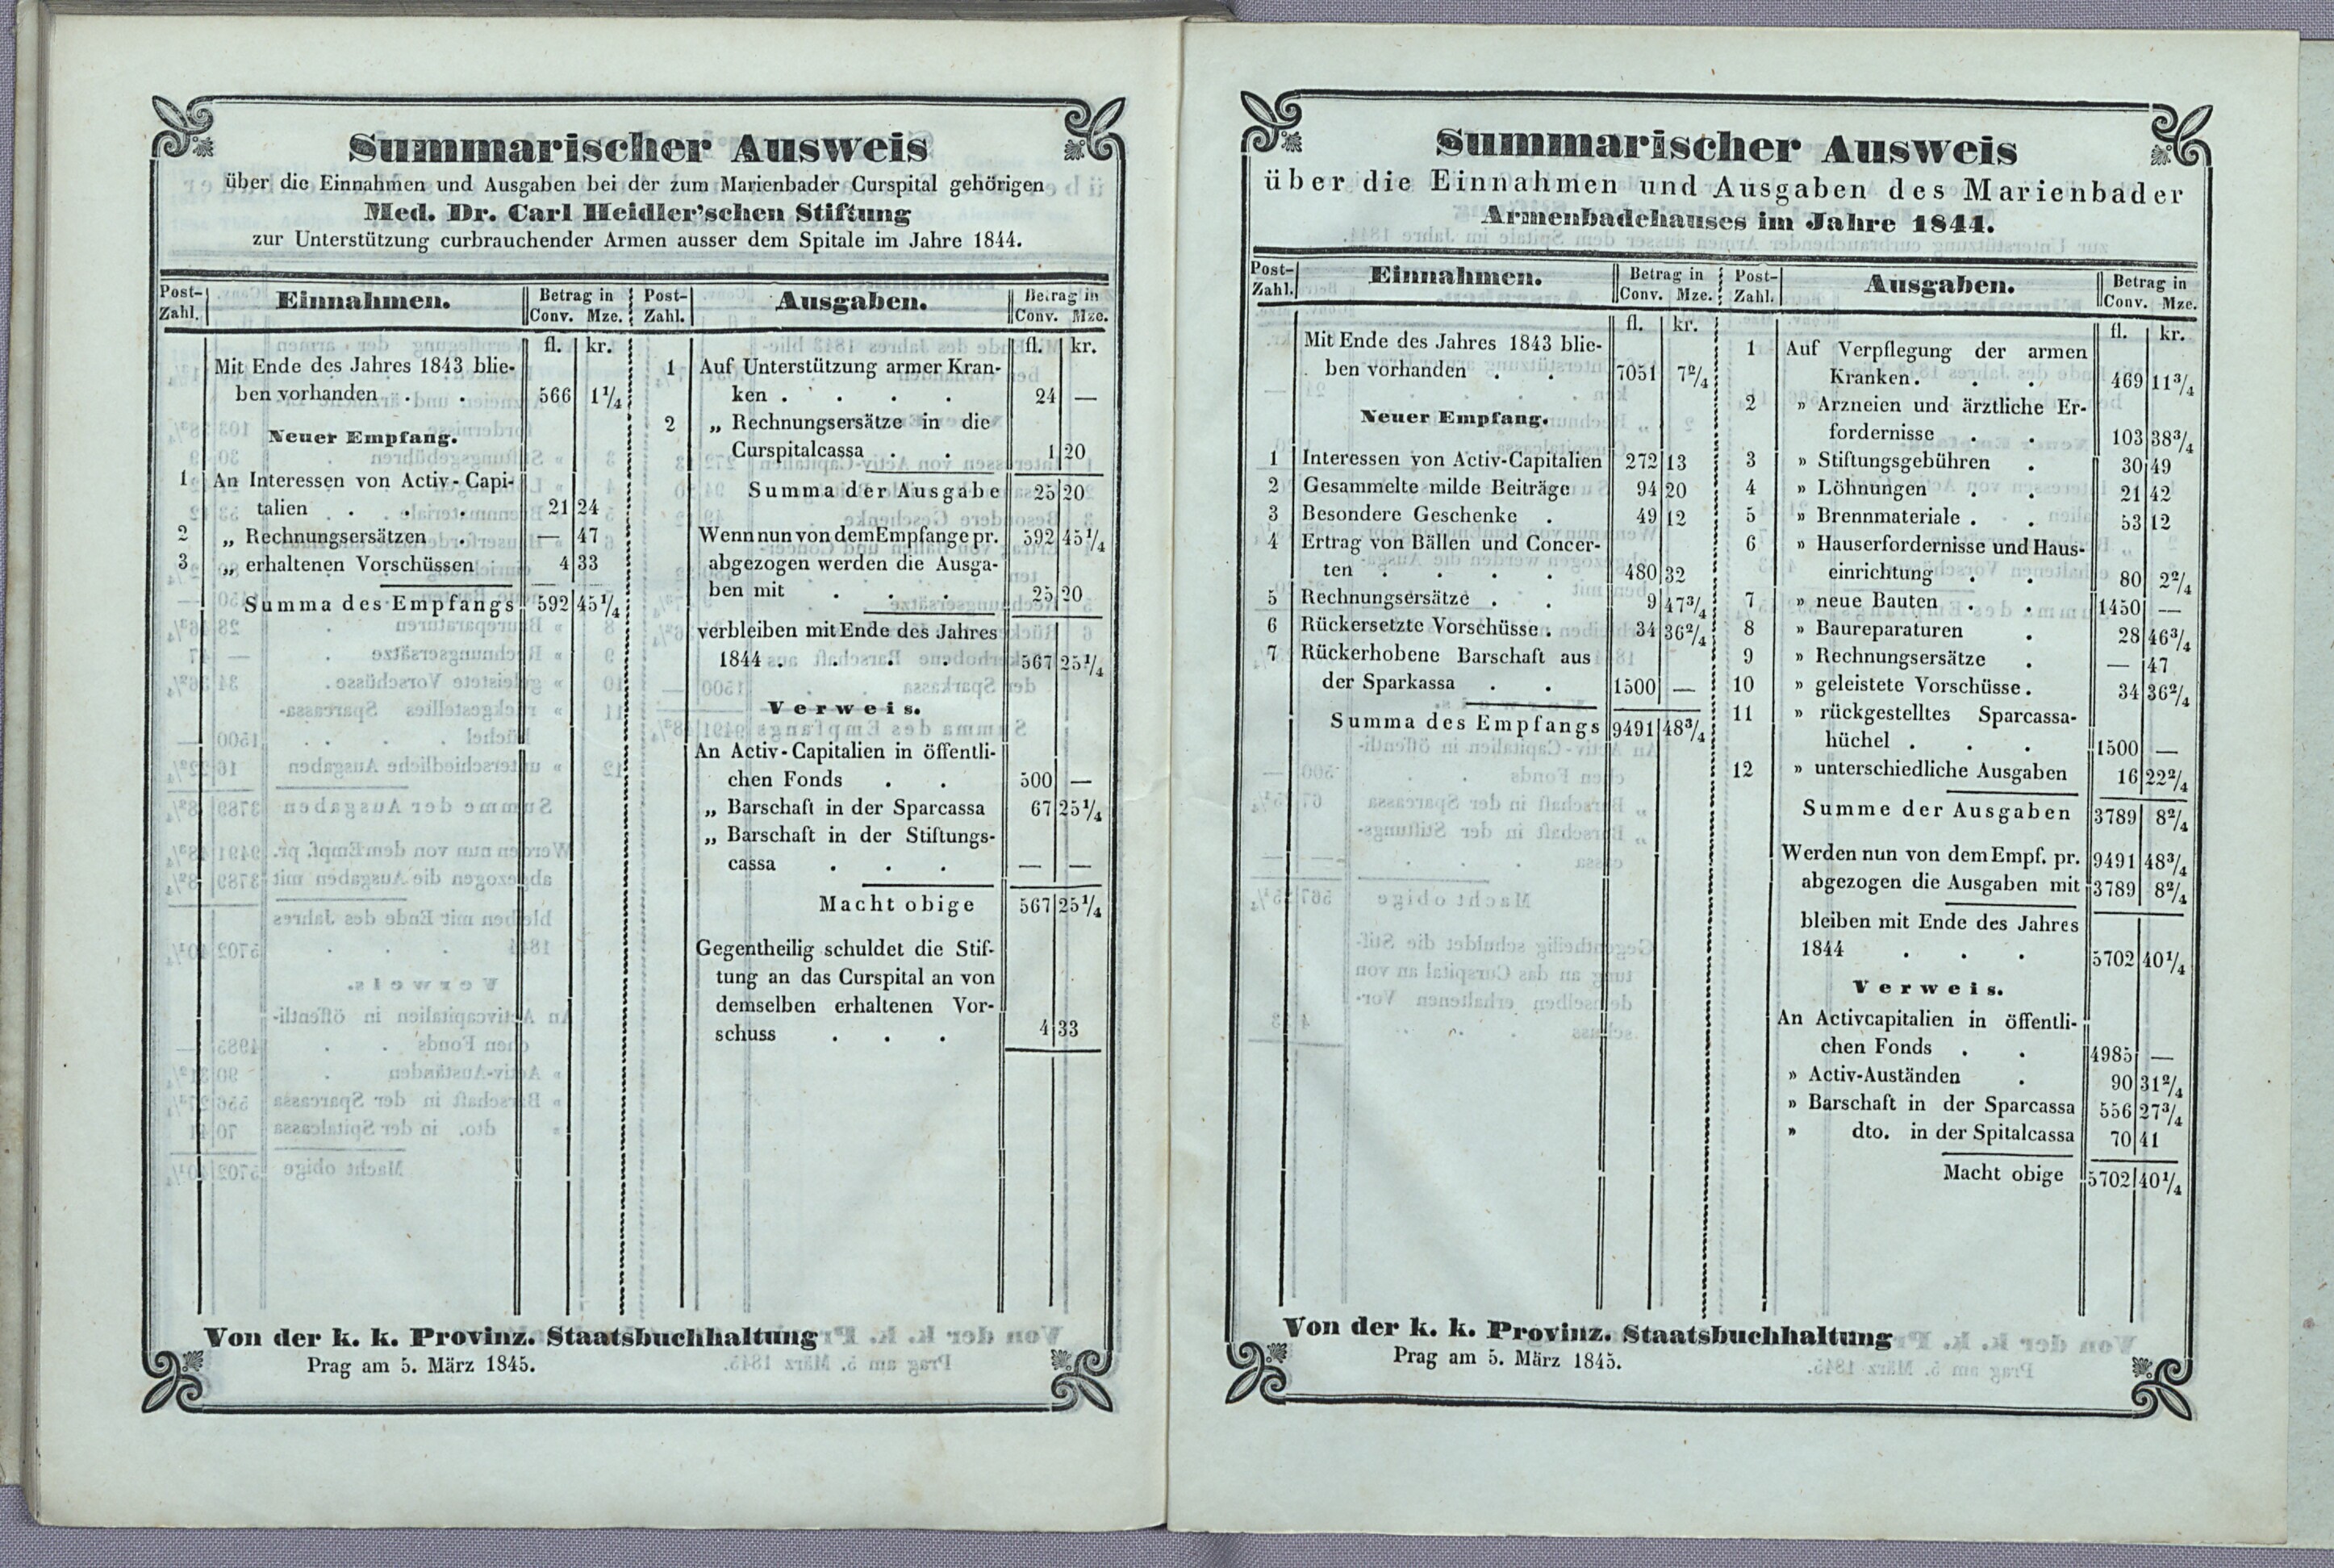 Summarischer Ausweis
über die Einnahmen und Ausgaben bei der zum Marienbader Curspital gehörigen
Med. Dr. Carl Heidler'schen Stiftung
zur Unterstützung curbrauchender Armen ausser dem Spitale im Jahre 1844.
Post-Zahl. Einnahmen. Betrag in Conv. Mze.
fl. kr.
Mit Ende des Jahres 1843 blie-
ben vorhanden . . 566 1 1/4
Neuer Empfang.
1 An Interessen von Activ-Capi-
talien . . . 21 24
2 „ Rechnungsersätzen . — 47
3 „ erhaltenen Vorschüssen 4 33
Summa des Empfangs 592 45 1/4
Post-Zahl. Ausgaben. Betrag in Conv. Mze.
fl. kr.
1 Auf Unterstützung armer Kran-
ken . . . . 24 —
2 „ Rechnungsersätze in die
Curspitalcassa . . 1 20
Summa der Ausgabe 25 20
Wenn nun von dem Empfange pr. 592 45 1/4
abgezogen werden die Ausga-
ben mit . . . 25 20
verbleiben mit Ende des Jahres
1844 . . . . 567 25 1/4
Verweis.
An Activ-Capitalien in öffentli-
chen Fonds . . 500 —
„ Barschaft in der Sparcassa 67 25 1/4
„ Barschaft in der Stiftungs-
cassa . . . — —
Macht obige 567 25 1/4
Gegentheilig schuldet die Stif-
tung an das Curspital an von
demselben erhaltenen Vor-
schuss . . . 4 33
Von der k. k. Provinz. Staatsbuchhaltung
Prag am 5. März 1845.
Summarischer Ausweis
über die Einnahmen und Ausgaben des Marienbader
Armenbadehauses im Jahre 1844.
Post-Zahl. Einnahmen. Betrag in Conv. Mze.
fl. kr.
Mit Ende des Jahres 1843 blie-
ben vorhanden . . 7051 7 2/4
Neuer Empfang.
1 Interessen von Activ-Capitalien 272 13
2 Gesammelte milde Beiträge 94 20
3 Besondere Geschenke . 49 12
4 Ertrag von Bällen und Concer-
ten . . . . 480 32
5 Rechnungsersätze . . 9 47 3/4
6 Rückersetzte Vorschüsse . 34 36 2/4
7 Rückerhobene Barschaft aus
der Sparkassa . . 1500 —
Summa des Empfangs 9491 48 3/4
Post-Zahl. Ausgaben. Betrag in Conv. Mze.
fl. kr.
1 Auf Verpflegung der armen
Kranken . . . 469 11 3/4
2 » Arzneien und ärztliche Er-
fordernisse . . 103 38 3/4
3 » Stiftungsgebühren . 30 49
4 » Löhnungen . . 21 42
5 » Brennmateriale . . 53 12
6 » Hauserfordernisse und Haus-
einrichtung . . 80 2 2/4
7 » neue Bauten . . 1450 —
8 » Baureparaturen . 28 46 3/4
9 » Rechnungsersätze . — 47
10 » geleistete Vorschüsse . 34 36 2/4
11 » rückgestelltes Sparcassa-
hüchel . . . 1500 —
12 » unterschiedliche Ausgaben 16 22 2/4
Summe der Ausgaben 3789 8 2/4
Werden nun von dem Empf. pr. 9491 48 3/4
abgezogen die Ausgaben mit 3789 8 2/4
bleiben mit Ende des Jahres
1844 . . . 5702 40 1/4
Verweis.
An Activcapitalien in öffentli-
chen Fonds . . 4985 —
» Activ-Auständen . 90 31 2/4
» Barschaft in der Sparcassa 556 27 3/4
» dto. in der Spitalcassa 70 41
Macht obige 5702 40 1/4
Von der k. k. Provinz. Staatsbuchhaltung
Prag am 5. März 1845.